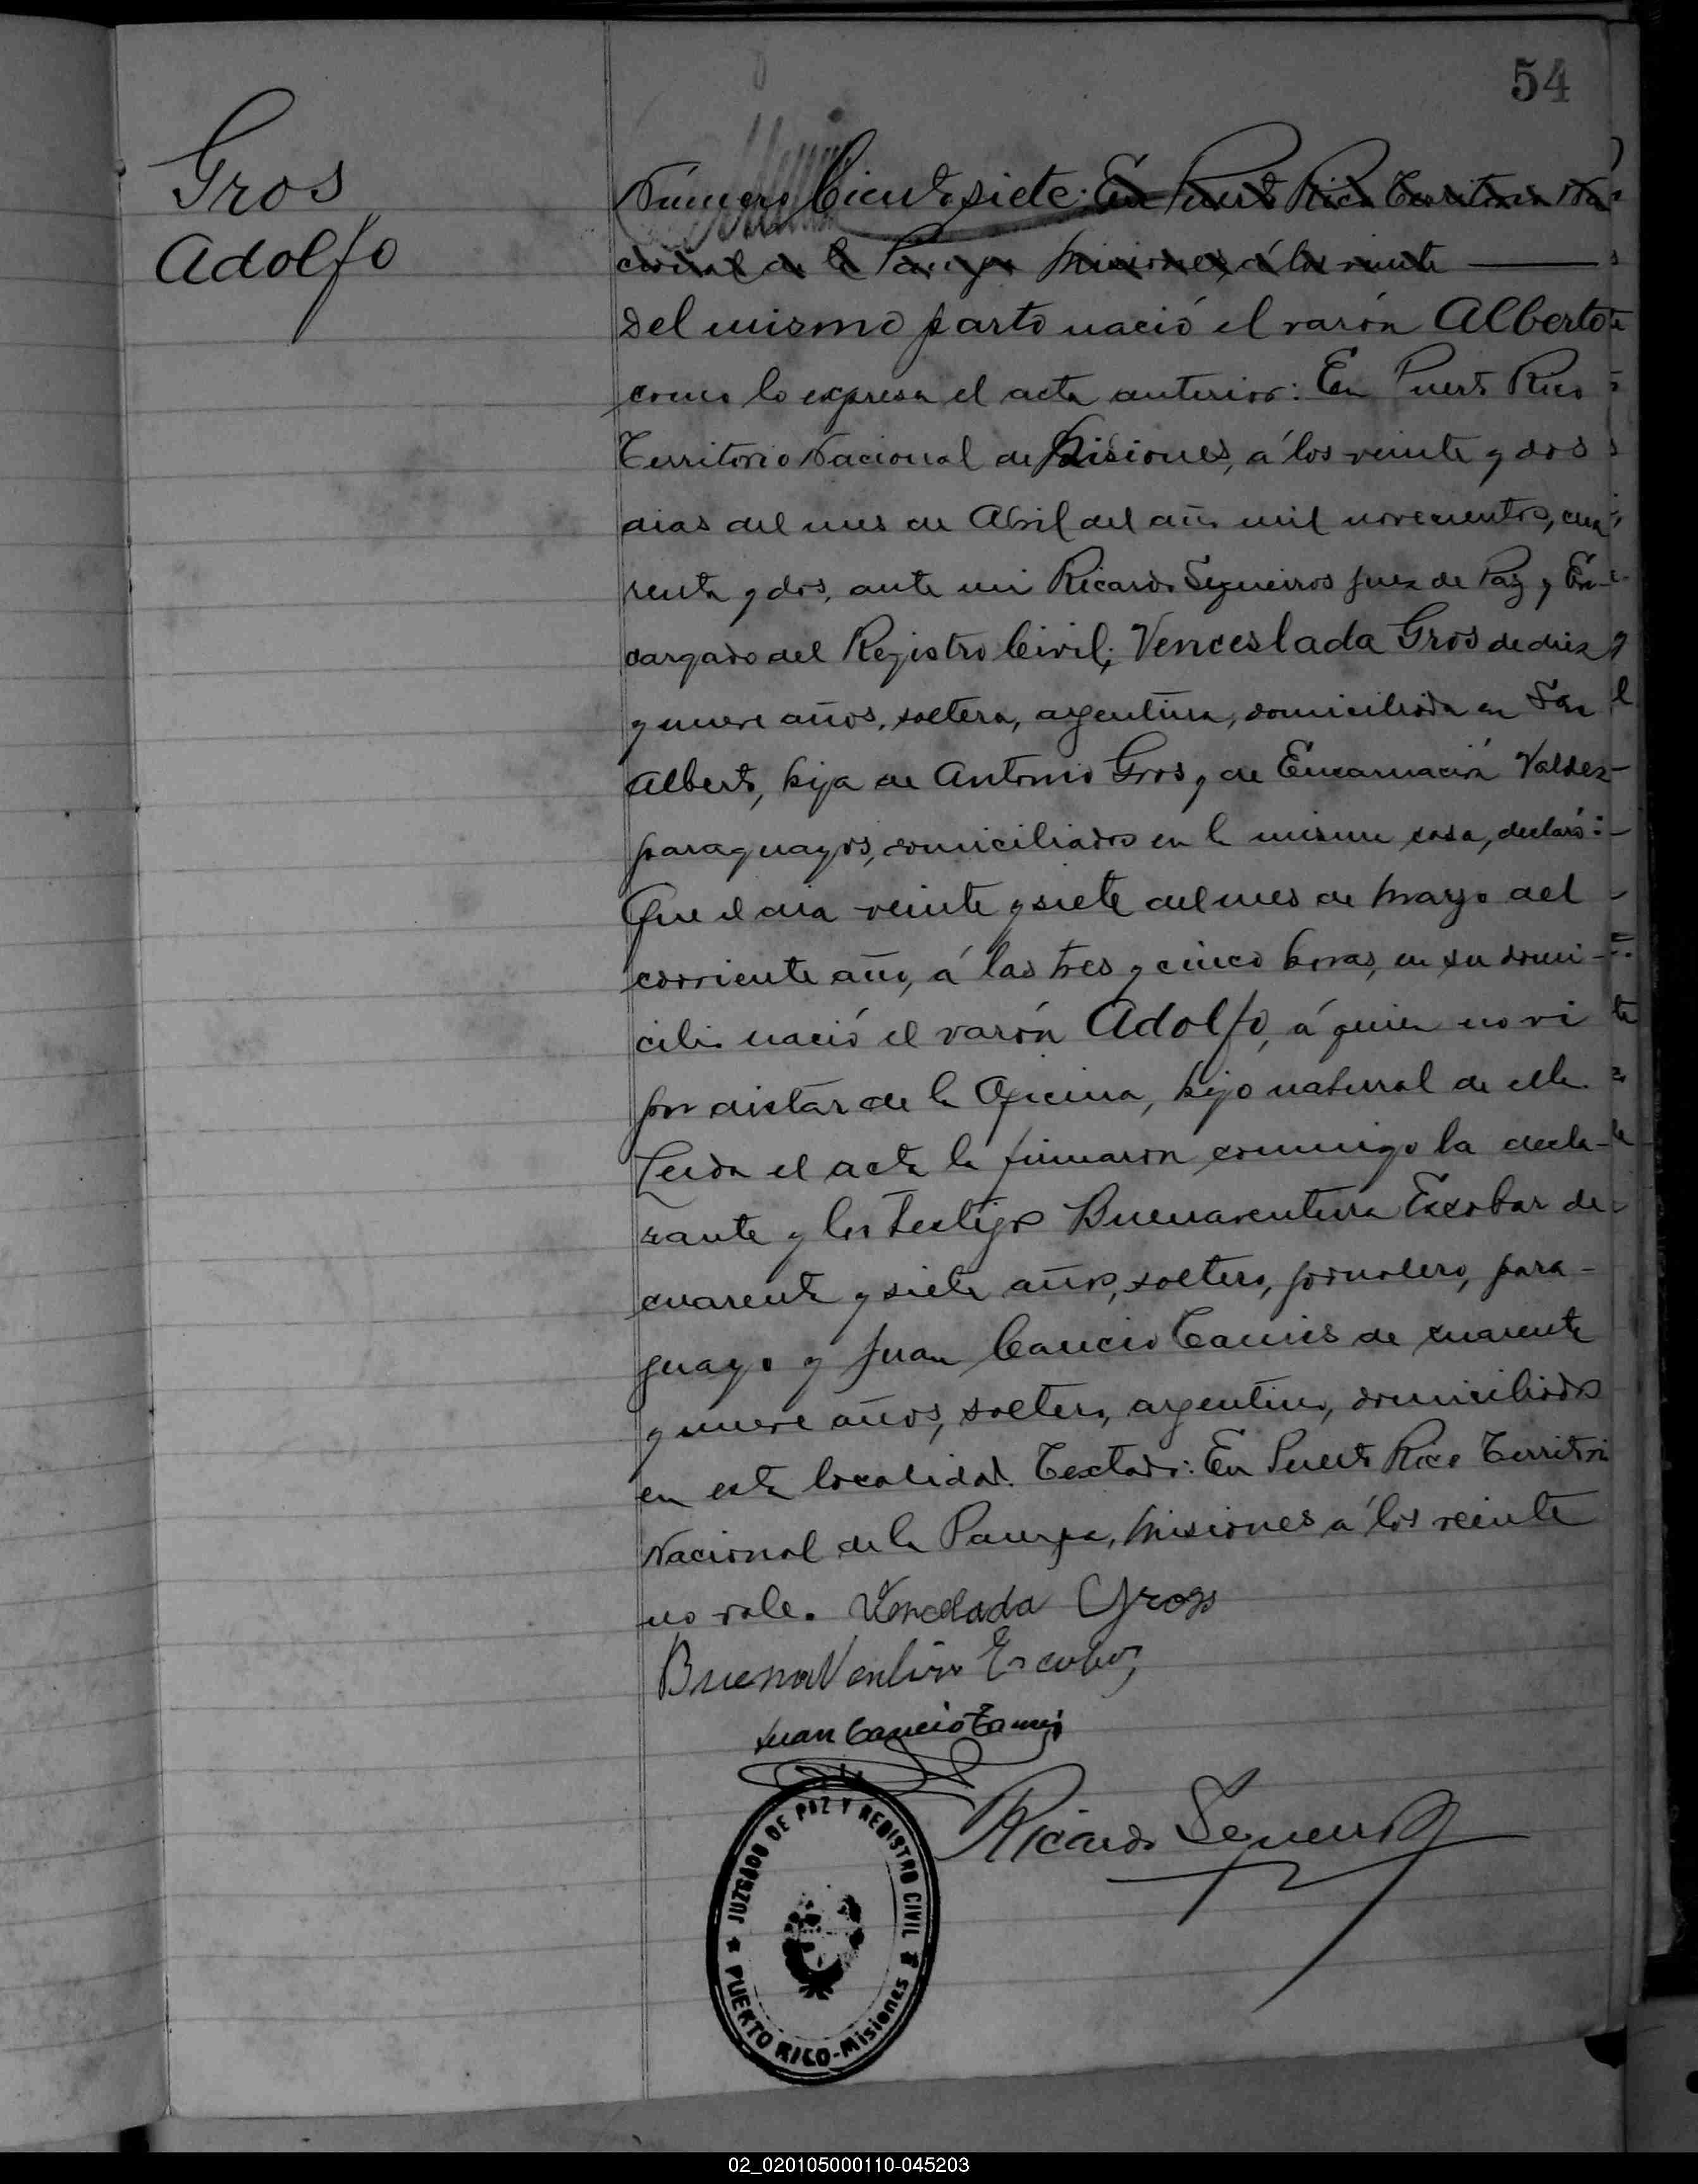 54
Gros
Adolfo
Número Ciento siete: En Puerto Rico Territorio Na-
cional de la Pampa Misiones, á los veinte
Del mismo parto nació el varón Alberto
como lo expresa el acta anterior: En Puerto Rico
Territorio Nacional de Misiones, á los veinte y dos
dias del mes de Abril del año mil novecientos, cua
renta y dos, ante mi Ricardo Sequeiros Juez de Paz y En-
cargado del Registro Civil; Venceslada Gros de diez
y nueve años, soltera, argentina, domiciliada en San
Alberto, hija de Antonio Gros y de Encarnación Valdez
paraguayos, domiciliados en la misma casa, declaró:
Que el dia veinte y siete del mes de Marzo del
corriente año, á las tres y cinco horas, en su domi-
cilio nació el varón Adolfo, á quien no vi
por distar de la Oficina, hijo natural de ella.
Leida el acta la firmaron conmigo la decla-
rante y los testigos Buenaventura Escobar de
cuarenta y siete años, soltero, jornalero, para-
guayo y Juan Cancio Tamis de cuarenta
y nueve años, soltero, argentino, domiciliados
en esta localidad. Testado: En Puerto Rico Territorio
Nacional de la Pampa, Misiones á los veinte
no vale. Venselada Gross
BuenaVentura Escobar
Juan Cancio Tamis
Ricardo Sequeiros
JUZGADO DE PAZ Y REGISTRO CIVIL
PUERTO RICO-Misiones
02_020105000110-045203